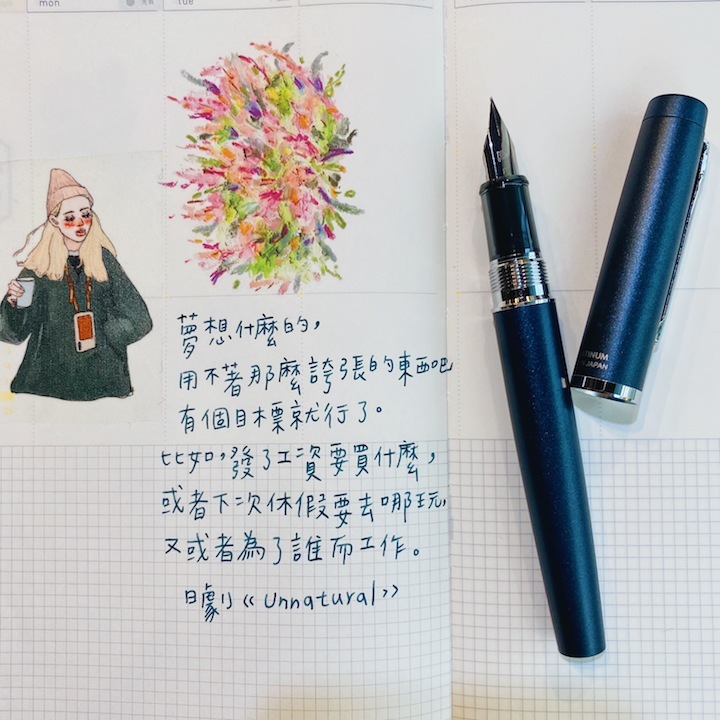 mon
tue
夢想什麼的,
用不著那麼誇張的東西吧
有個目標就行了。
比如,發了工資要買什麼,
或者下次休假要去哪玩,
又或者為了誰而工作。
日劇《Unnatural》
JAPAN